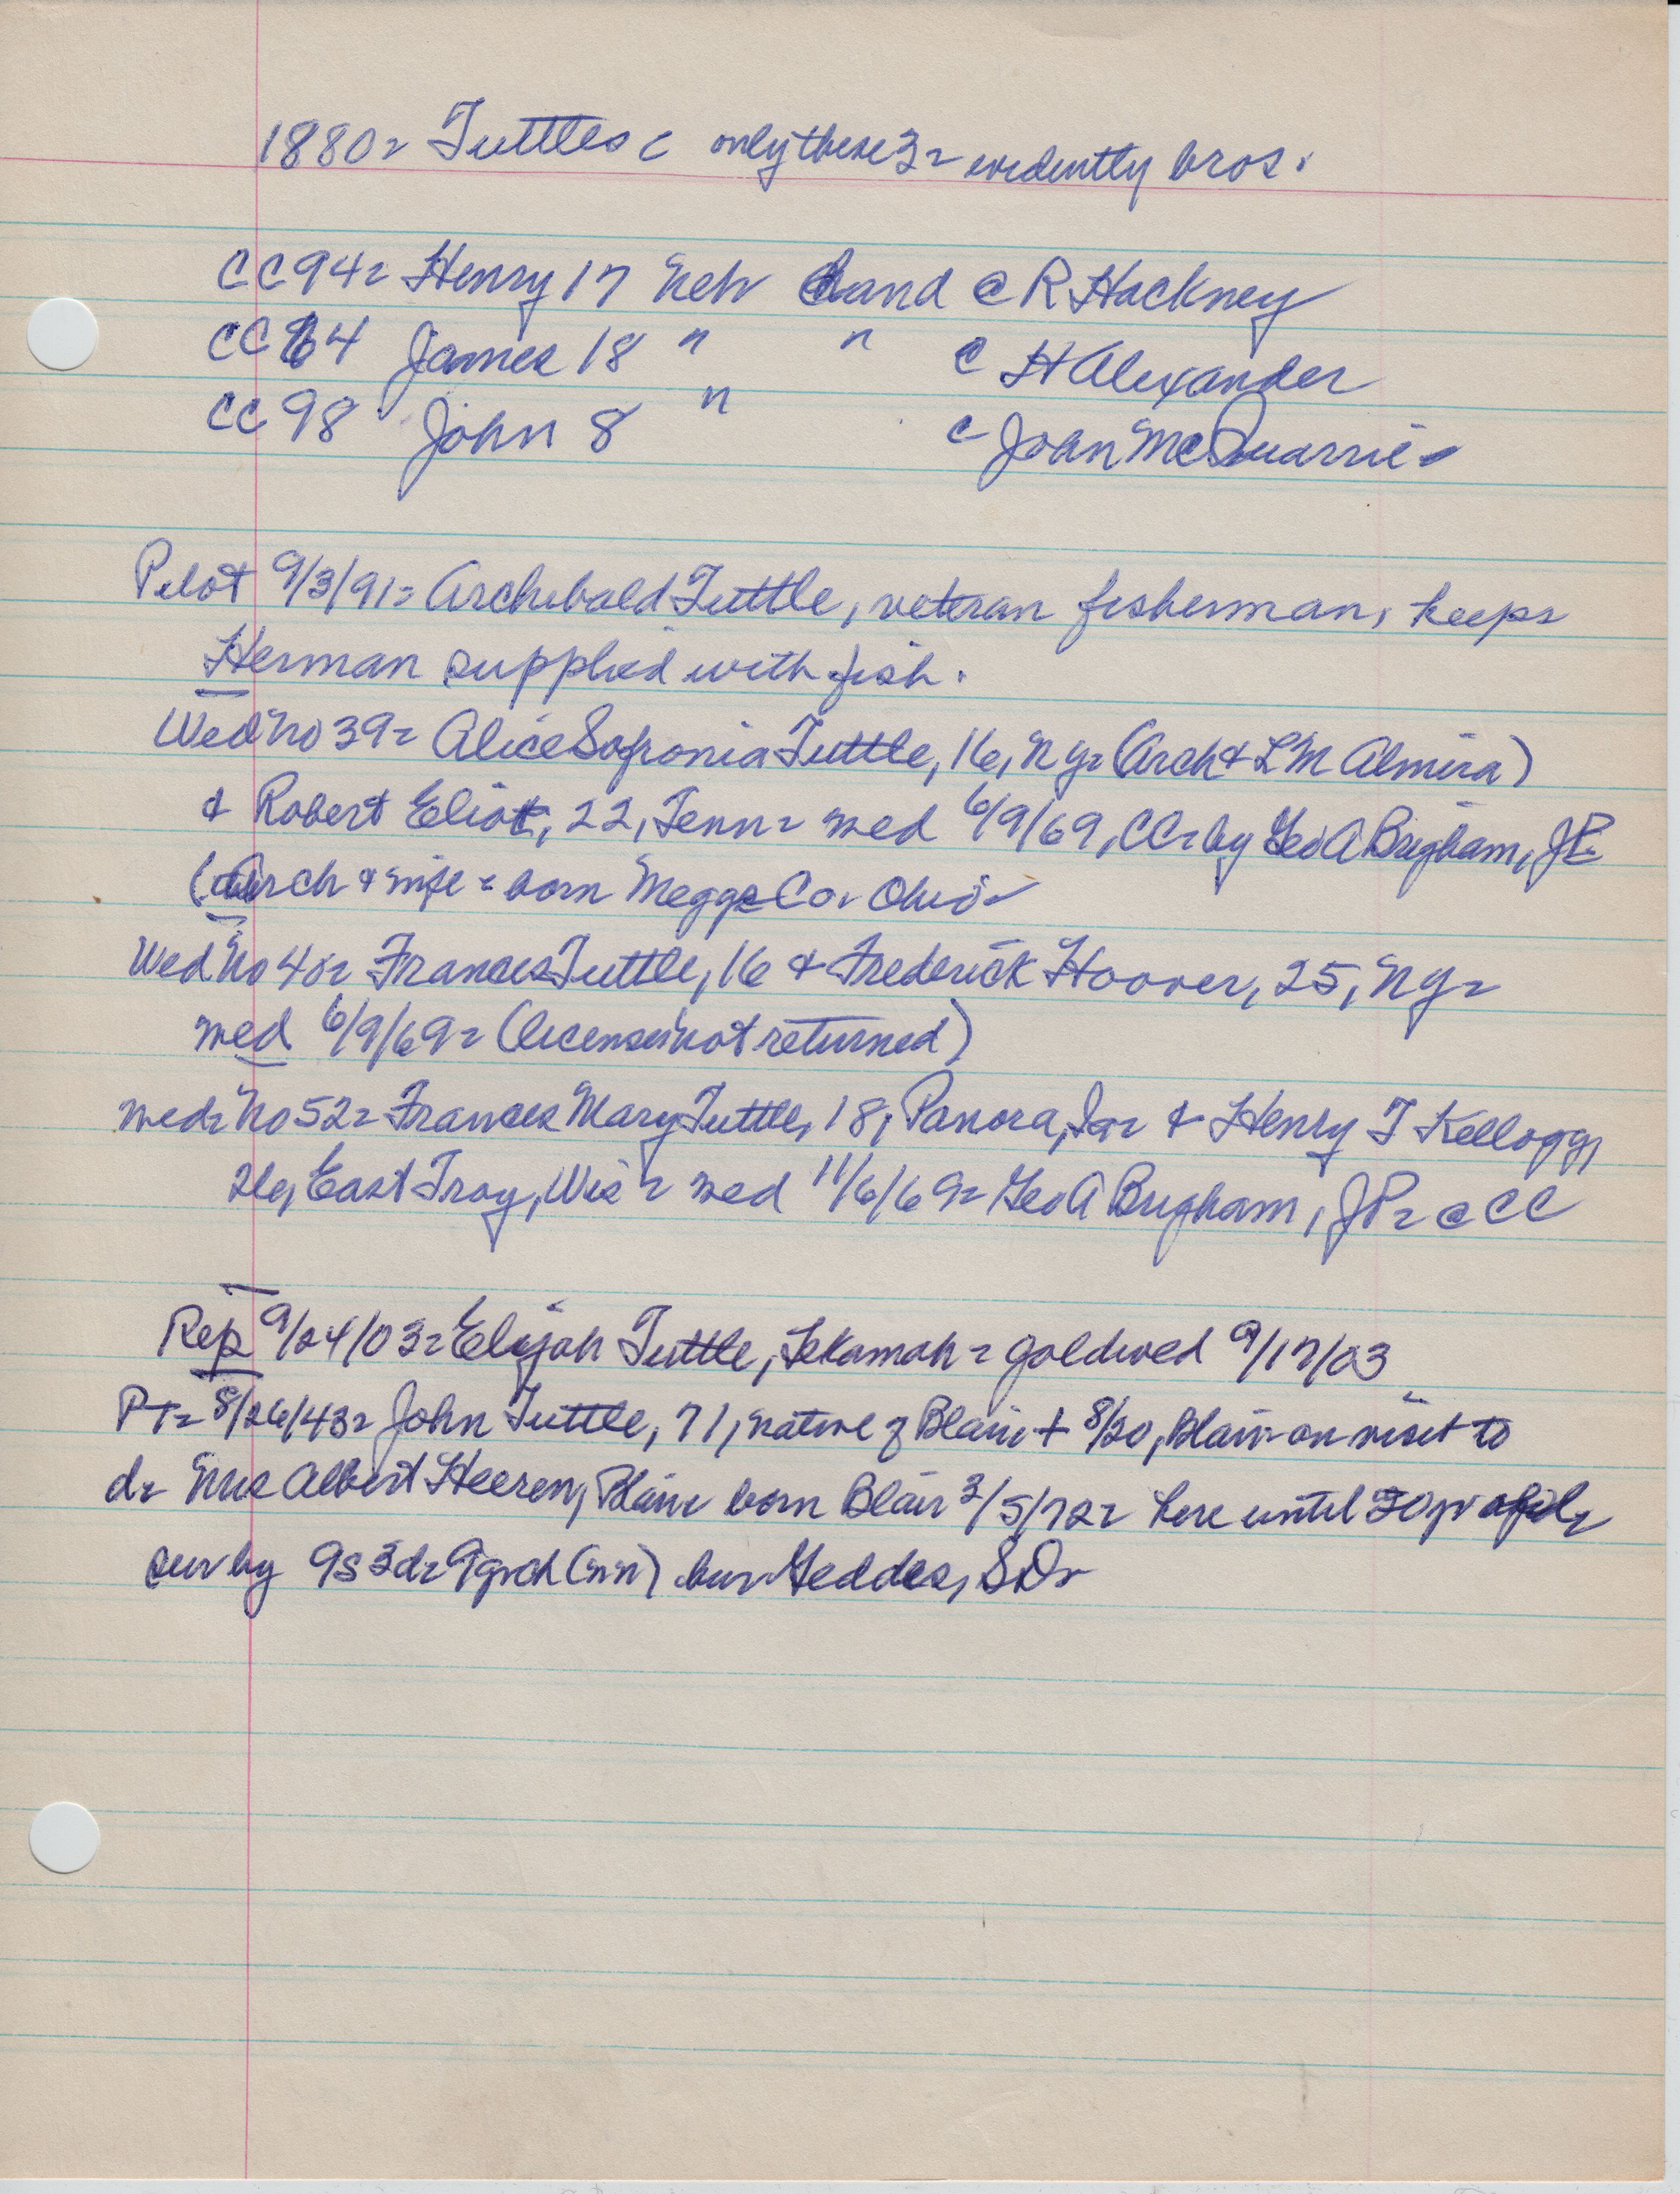 1880= Tuttles c only these 3= evidently bros.
CC 94= Henry 17 Neb hand @ R Hackney
CC 64 James 18 " " @ H Alexander
CC 98 John 8 " @ John McQuarrie-
Pilot 9/3/91= Archibald Tuttle, veteran fisherman, keeps
Herman supplied with fish.
Wed No 39= Alice Sofronia Tuttle, 16, N Y= (Arch & L M Almira)
& Robert Eliot, 22, Tenn= med 6/9/69, CC= by Geo A Brigham, JP
(Arch & wife = born Meggs Co. Ohio-
Wed No 40= Frances Tuttle, 16 & Frederick Hoover, 25, N Y=
med 6/9/69= (license not returned)
Med= No 52= Frances Mary Tuttle, 18, Panora, Ia= & Henry T Kellogg,
East Troy, Wis= med 11/6/69= Geo A Brigham, JP= @ CC
Rep 9/24/03= Elijah Tuttle, Tekamah= goldwed 9/17/03
PT= 8/26/43= John Tuttle, 71, native of Blair + 8/20, Blair- on visit to
d= Mrs Albert Heeren, Blair born Blair 3/5/72= here until
sur by 9s 3d= 9grch (nn) bur Geddes, SD-